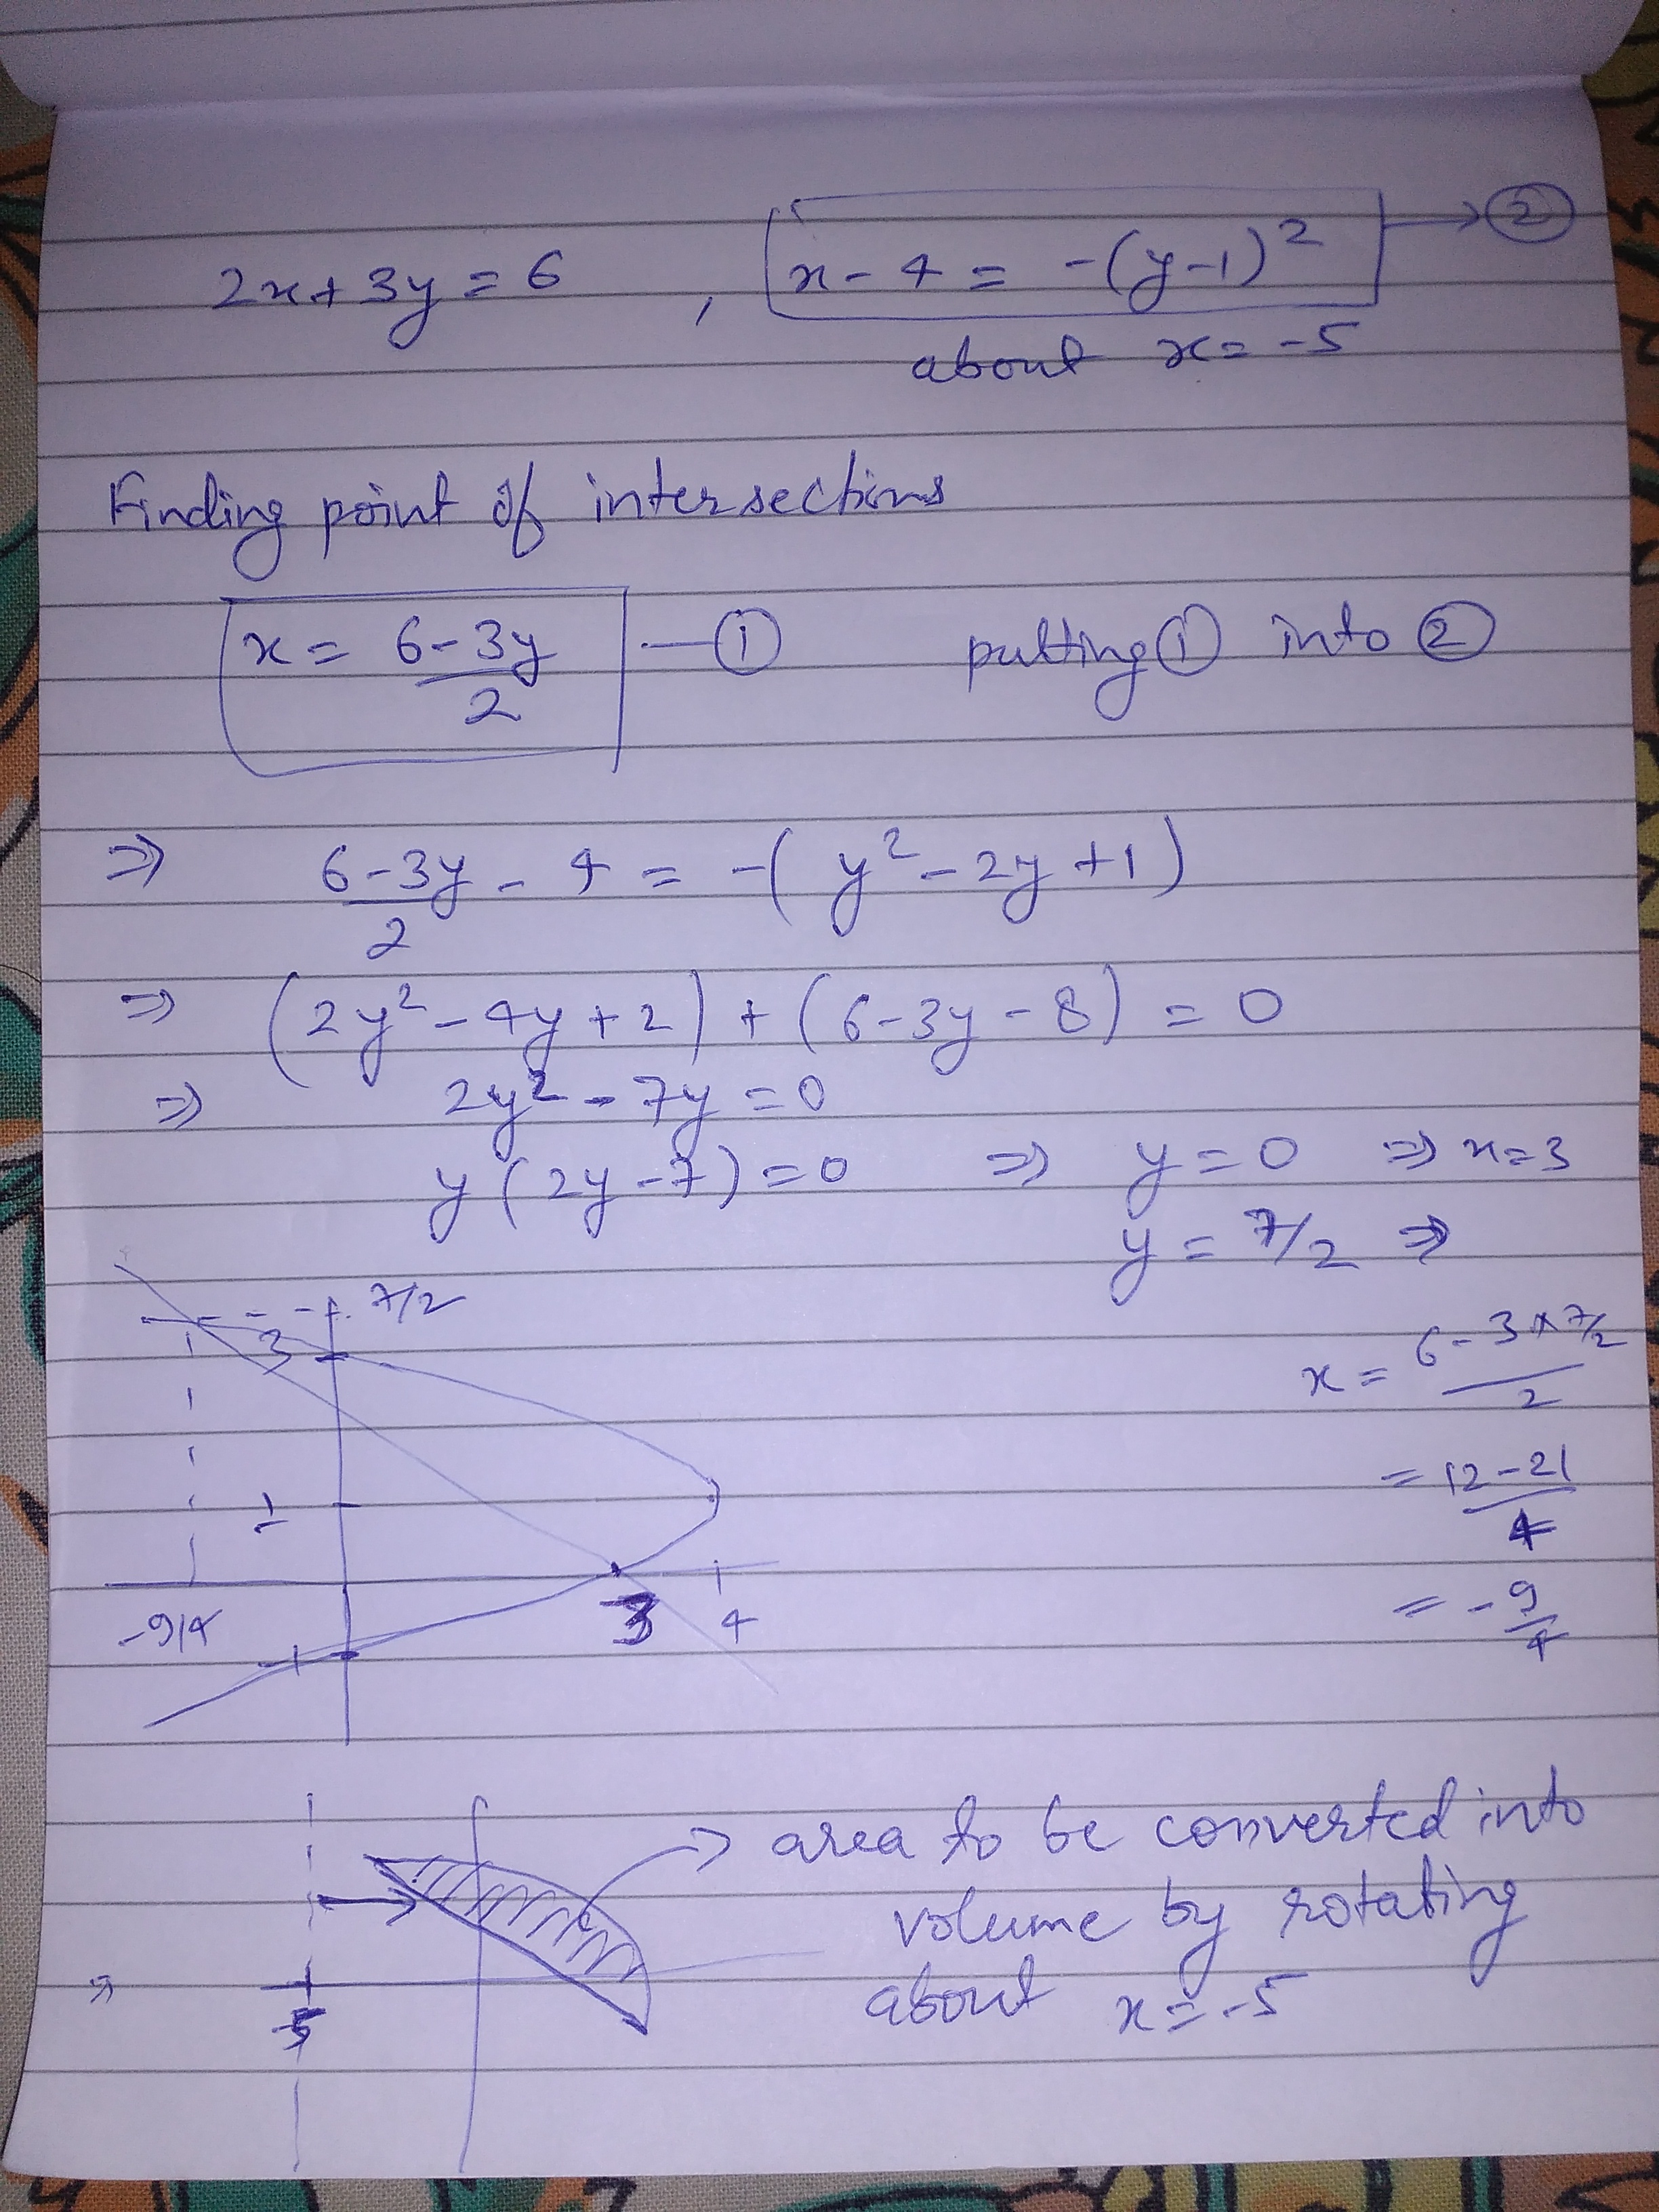 2x + 3y = 6 , x - 4 = -(y-1)² → ②
about x = -5
Finding point of intersections
x = (6-3y)/2 — ① putting ① into ②
⇒ (6-3y)/2 - 4 = -(y² - 2y + 1)
⇒ (2y² - 4y + 2) + (6 - 3y - 8) = 0
⇒ 2y² - 7y = 0
y(2y-7) = 0 ⇒ y = 0 ⇒ x = 3
y = 7/2 ⇒
x = (6 - 3×7/2)/2
= (12-21)/4
= -9/4
7/2
3
1
-9/4 3 4
-1
→ area to be converted into
volume by rotating
⇒ about x = -5
-5